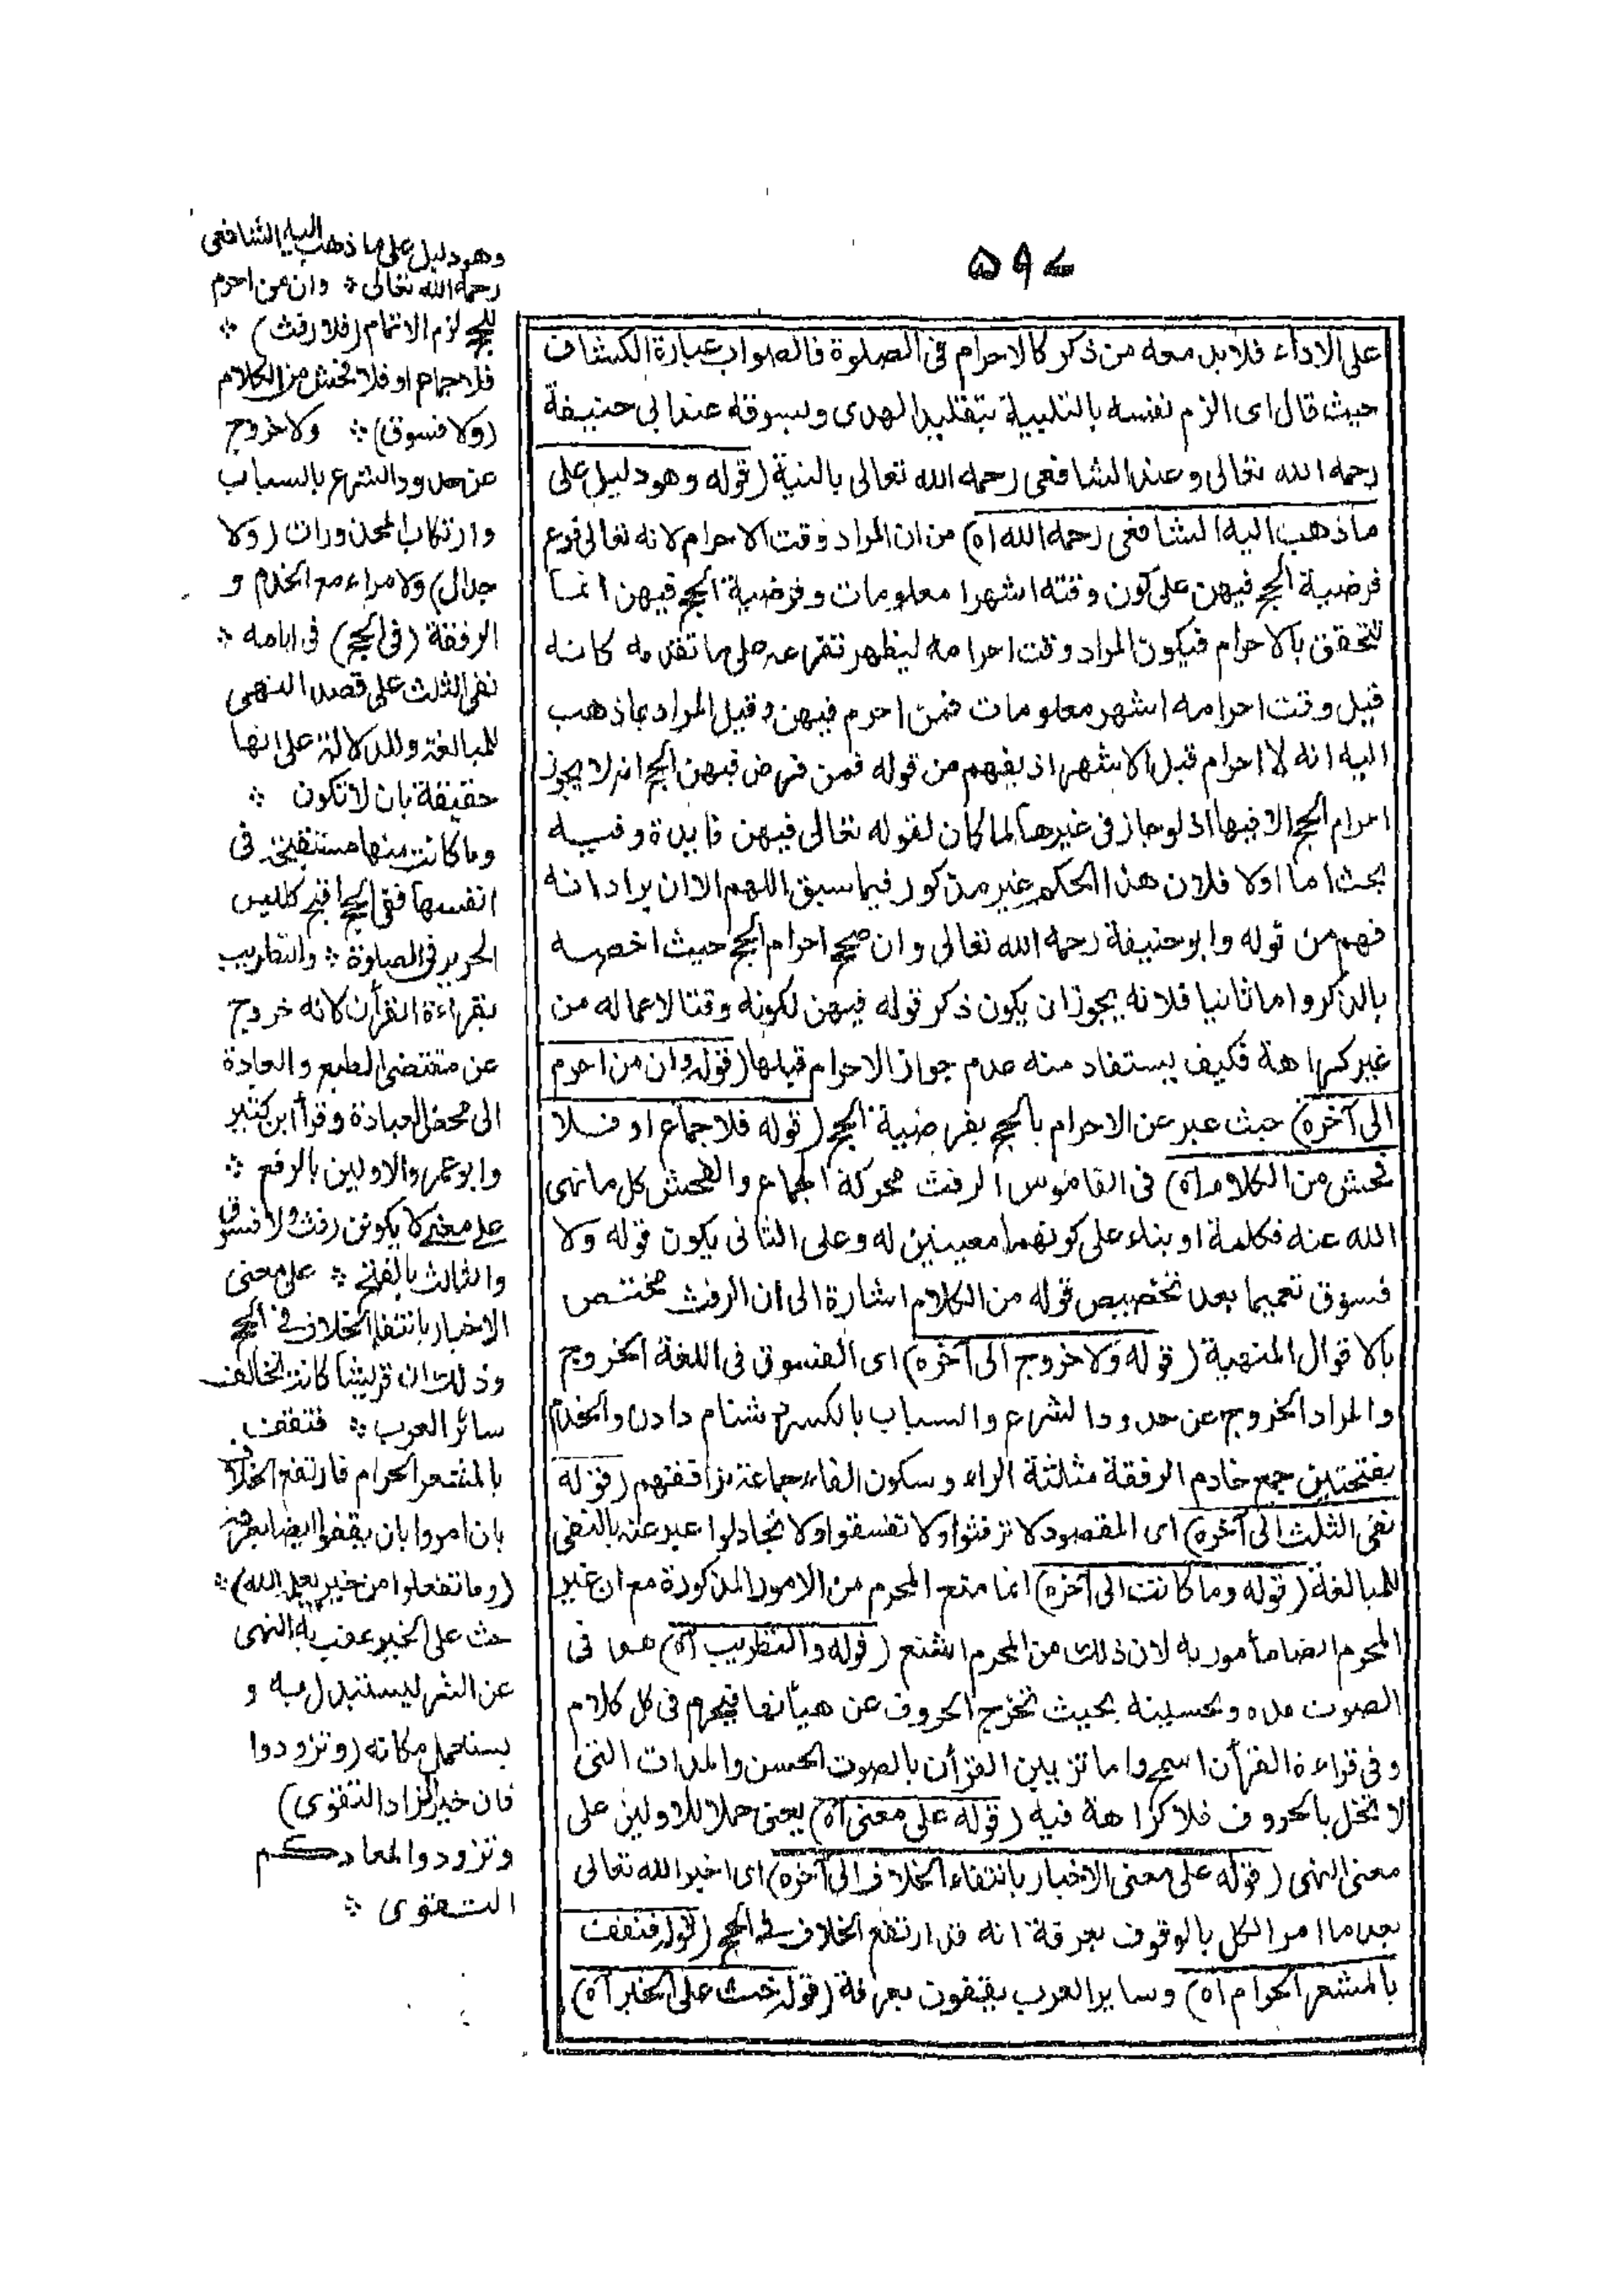 ٥٩٤
على الاداء فلابد معه من ذكر كالاحرام فى الصلوة فالصواب عبارة الكشاف
حيث قال اى الزم نفسه بالتلبية بتقليد الهدى وبسوقه عند ابى حنيفة
رحمه الله تعالى وعند الشافعى رحمه الله تعالى بالنية (قوله وهو دليل على
ما ذهب اليه الشافعى رحمه الله اه) من ان المراد وقت الاحرام لانه تعالى فرع
فرضية الحج فيهن على كون وقته اشهرا معلومات وفرضية الحج فيهن انما
تتحقق بالاحرام فيكون المراد وقت احرامه ليظهر تفرعه على ما تقدمه كانه
قيل وقت احرامه اشهر معلومات فمن احرم فيهن وقيل المراد بما ذهب
اليه انه لا احرام قبل الاشهر اذ يفهم من قوله فمن فرض فيهن الحج انه لا يجوز
احرام الحج الا فيها اذ لو جاز فى غيرها لما كان لقوله تعالى فيهن فايدة وفيه
بحث اما اولا فلان هذا الحكم غير مذكور فيما سبق اللهم الا ان يراد انه
فهم من قوله وابو حنيفة رحمه الله تعالى وان صحح احرام الحج حيث اخصه
بالذكر واما ثانيا فلانه يجوز ان يكون ذكر قوله فيهن لكونه وقتا لاعماله من
غير كراهة فكيف يستفاد منه عدم جواز الاحرام قبلها (قوله وان من احرم
الى آخره) حيث عبر عن الاحرام بالحج بفرضية الحج (قوله فلا جماع او فلا
فحش من الكلام اه) فى القاموس الرفث محركة الجماع والفحش كل ما نهى
الله عنه فكلمة او بناء على كونهما معيينين له وعلى الثانى يكون قوله ولا
فسوق تعميما بعد تخصيص قوله من الكلام اشارة الى ان الرفث مختص
بالاقوال المنهية (قوله ولا خروج الى آخره) اى الفسوق فى اللغة الخروج
والمراد الخروج عن حدود الشرع والسباب بالكسر دشنام دادن والخدام
بفتحتين جمع خادم الرفقة مثالثة الراء وسكون الفاء جماعة ترافقهم (قوله
نفى الثلث الى آخره) اى المقصود لا ترفثوا ولا تفسقوا ولا تجادلوا عبر عنه بالنفى
للمبالغة (قوله وما كانت الى آخره) انما منع المحرم من الامور المذكورة مع ان غير
المحرم ايضا مأمور به لان ذلك من المحرم اشنع (قوله والتطريب اه) هو فى
الصوت مده وتحسينه بحيث تخرج الحروف عن هيأتها فيحرم فى كل كلام
وفى قراءة القرأن اسمج واما تزيين القرأن بالصوت الحسن والمدات التى
لا تخل بالحروف فلا كراهة فيه (قوله على معنى اه) يعنى حملا للاولين على
معنى النهى (قوله على معنى الاخبار بانتفاء الخلاف الى آخره) اى اخبر الله تعالى
بعد ما امر الكل بالوقوف بعرفة انه قد ارتفع الخلاف فى الحج (قوله فتقف
بالمشعر الحرام اه) وساير العرب يقفون بعرفة (قوله حث على الخير اه)
وهو دليل على ما ذهب اليه الشافعى
رحمه الله تعالى * وان من احرم
للحج لزم الاتمام (فلا رفث) *
فلا جماع او فلا فحش من الكلام
(ولا فسوق) * ولا خروج
عن حدود الشرع بالسباب
وارتكاب المحذورات (ولا
جدال) ولا مراء مع الخدام و
الرفقة (فى الحج) فى ايامه *
نفى الثلث على قصد النهى
للمبالغة وللدلالة على انها
حقيقة بان لا تكون *
وما كانت منها مستقبحة فى
انفسها ففى الحج اقبح كلبس
الحرير فى الصلوة * والتطريب
بقراءة القرأن لانه خروج
عن مقتضى الطبع والعادة
الى محض العبادة وقرأ ابن كثير
وابو عمرو الاولين بالرفع *
على معنى لا يكونن رفث ولا فسوق
والثالث بالفتح * على معنى
الاخبار بانتفاء الخلاف فى الحج
وذلك ان قريشا كانت تخالف
سائر العرب * فتقف
بالمشعر الحرام فارتفع الخلاف
بان امروا بان يقفوا ايضا بعرفة
(وما تفعلوا من خير يعلمه الله) *
حث على الخير عقب به النهى
عن الشر ليستبدل به و
يستعمل مكانه (وتزودوا
فان خير الزاد التقوى)
وتزودوا لمعادكم
التقوى *